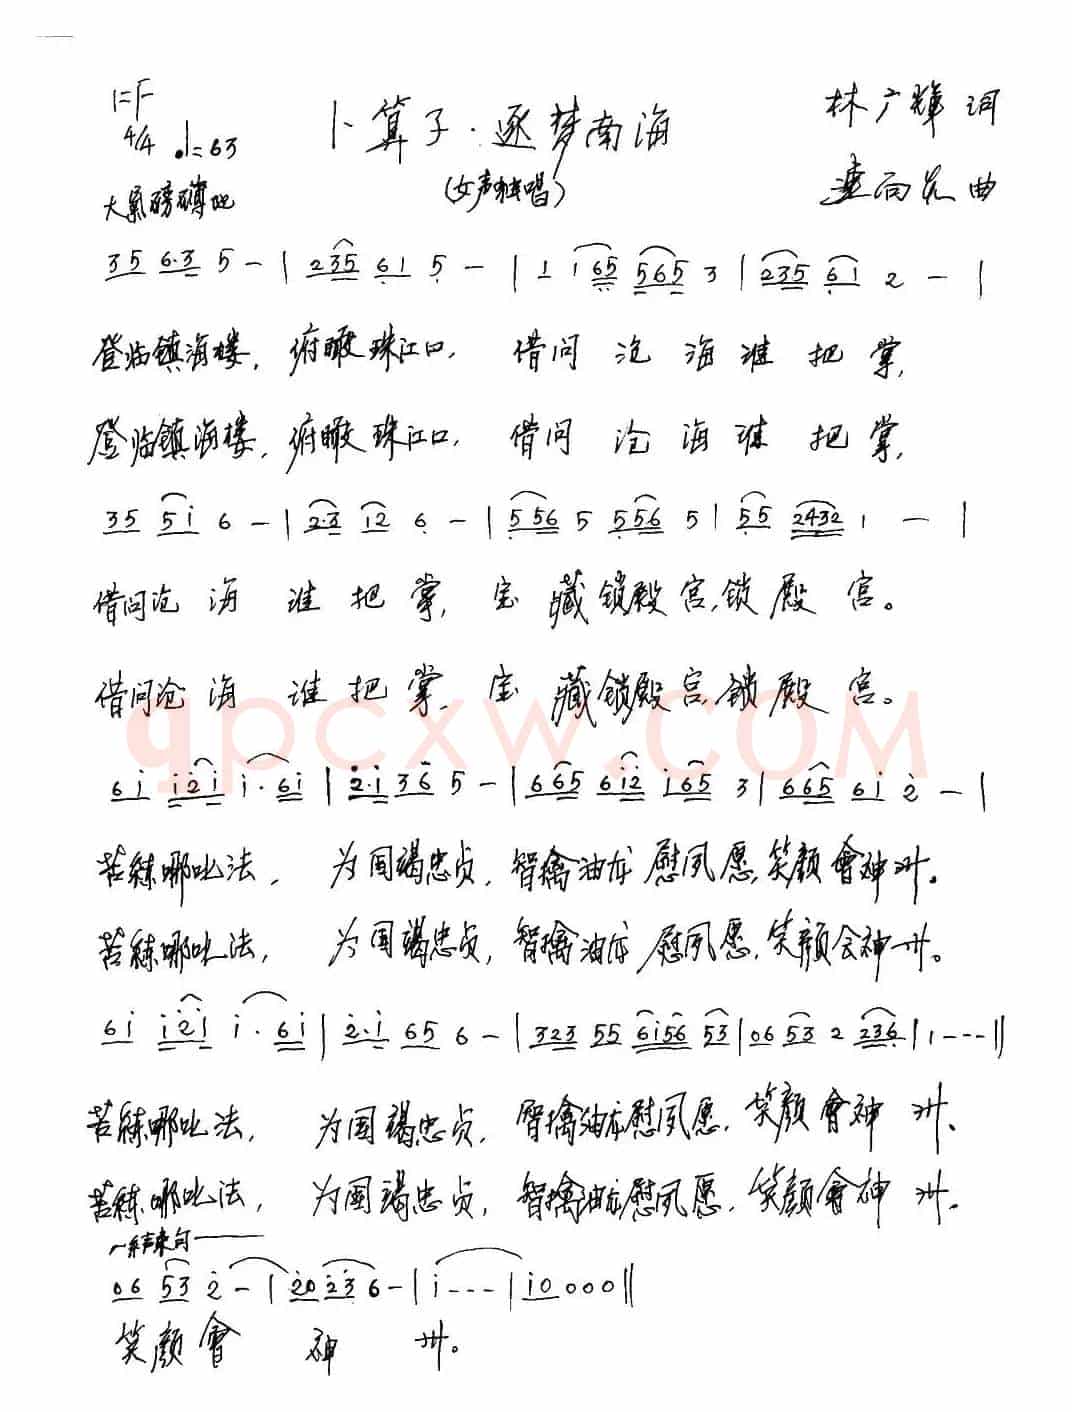 1=F
卜算子·逐梦南海
林广辉 词
4/4 ♩=63
(女声独唱)
连向先 曲
大气磅礴地
35 6·3 5 - | 235 61 5 - | 1 1 65 565 3 | 235 61 2 - |
登临镇海楼，俯瞰珠江口。 借问沧海谁把掌，
登临镇海楼，俯瞰珠江口。 借问沧海谁把掌，
35 5i 6 - | 2·3 12 6 - | 556 5 556 5 | 55 2432 1 - |
借问沧海谁把掌，宝藏锁殿宫，锁殿宫。
借问沧海谁把掌，宝藏锁殿宫，锁殿宫。
qpcxw.COM
6i i2i i·6i | 2·i 36 5 - | 665 6i2 i65 3 | 665 6i 2 - |
苦练哪吒法， 为国竭忠贞，智擒油龙慰夙愿，笑颜會神州。
苦练哪吒法， 为国竭忠贞，智擒油龙慰夙愿，笑颜会神州。
6i i2i i·6i | 2·i 65 6 - | 323 55 6i56 53 | 06 53 2 236 | 1 - - - ||
苦练哪吒法， 为国竭忠贞，智擒油龙慰夙愿，笑颜會神州、
苦练哪吒法， 为国竭忠贞，智擒油龙慰夙愿，笑颜會神州。
结束句
06 53 2 - | 20 23 6 - | i - - - | i0 0 0 0 ||
笑颜會神州。